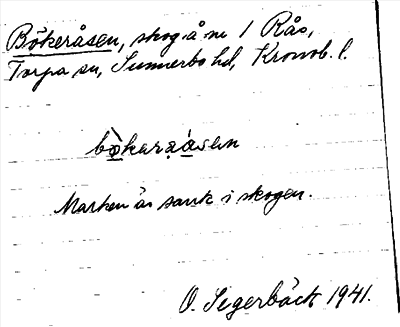 Bökeråsen, skog å nr 1 Rås,
Torpa sn, Sunnerbo hd, Kronob. l.
bö̀keraåsen
Marken är sank i skogen.
O. Segerbäck 1941.